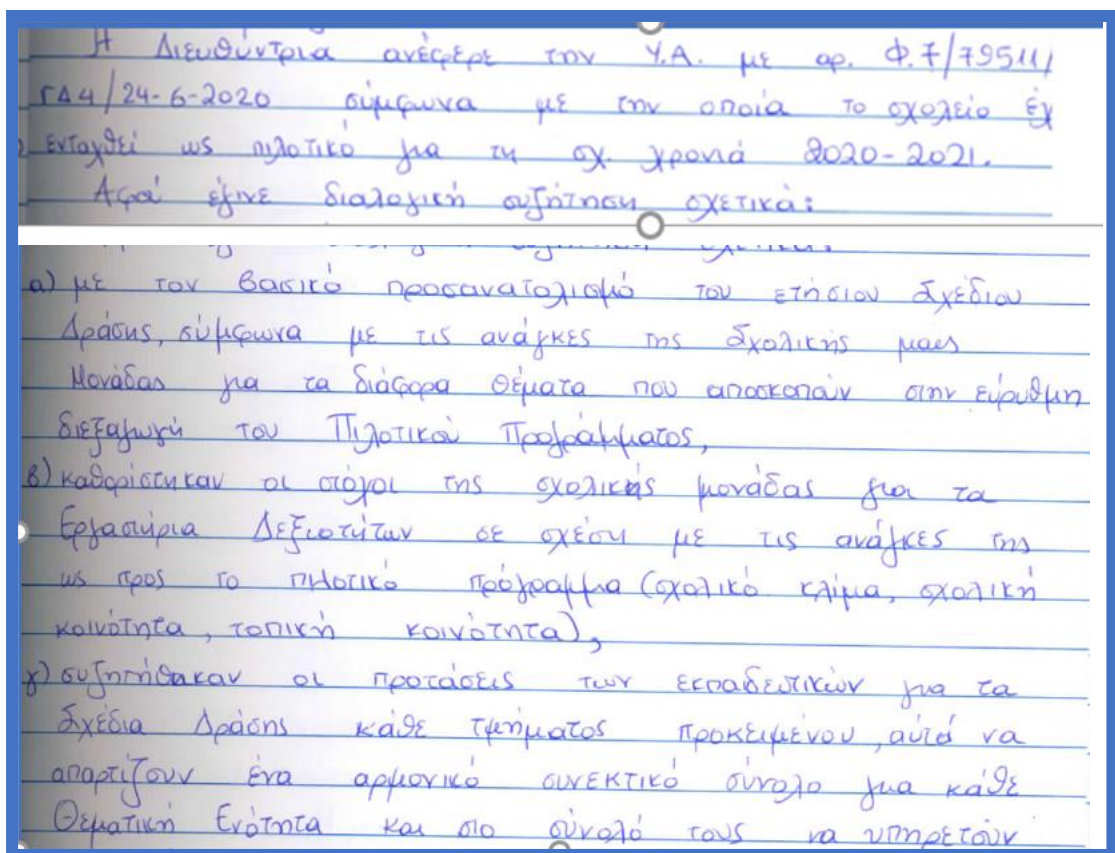 Η Διευθύντρια ανέφερε την Υ.Α. με αρ. Φ.7/79511/
ΓΔ4/24-6-2020 σύμφωνα με την οποία το σχολείο έχ
ενταχθεί ως πιλοτικό για τη σχ. χρονιά 2020-2021.
Αφού έγινε διαλογική συζήτηση σχετικά:
α) με τον βασικό προσανατολισμό του ετήσιου Σχέδιου
Δράσης, σύμφωνα με τις ανάγκες της Σχολικής μας
Μονάδας για τα διάφορα θέματα που αποσκοπούν στην εύρυθμη
διεξαγωγή του Πιλοτικού Προγράμματος,
β) καθορίστηκαν οι στόχοι της σχολικής μονάδας για τα
Εργαστήρια Δεξιοτήτων σε σχέση με τις ανάγκες της
ως προς το πιλοτικό πρόγραμμα (σχολικό κλίμα, σχολική
κοινότητα, τοπική κοινότητα),
γ) συζητήθηκαν οι προτάσεις των εκπαιδευτικών για τα
Σχέδια Δράσης κάθε τμήματος προκειμένου, αυτά να
απαρτίζουν ένα αρμονικό συνεκτικό σύνολο για κάθε
Θεματική Ενότητα και στο σύνολό τους να υπηρετούν